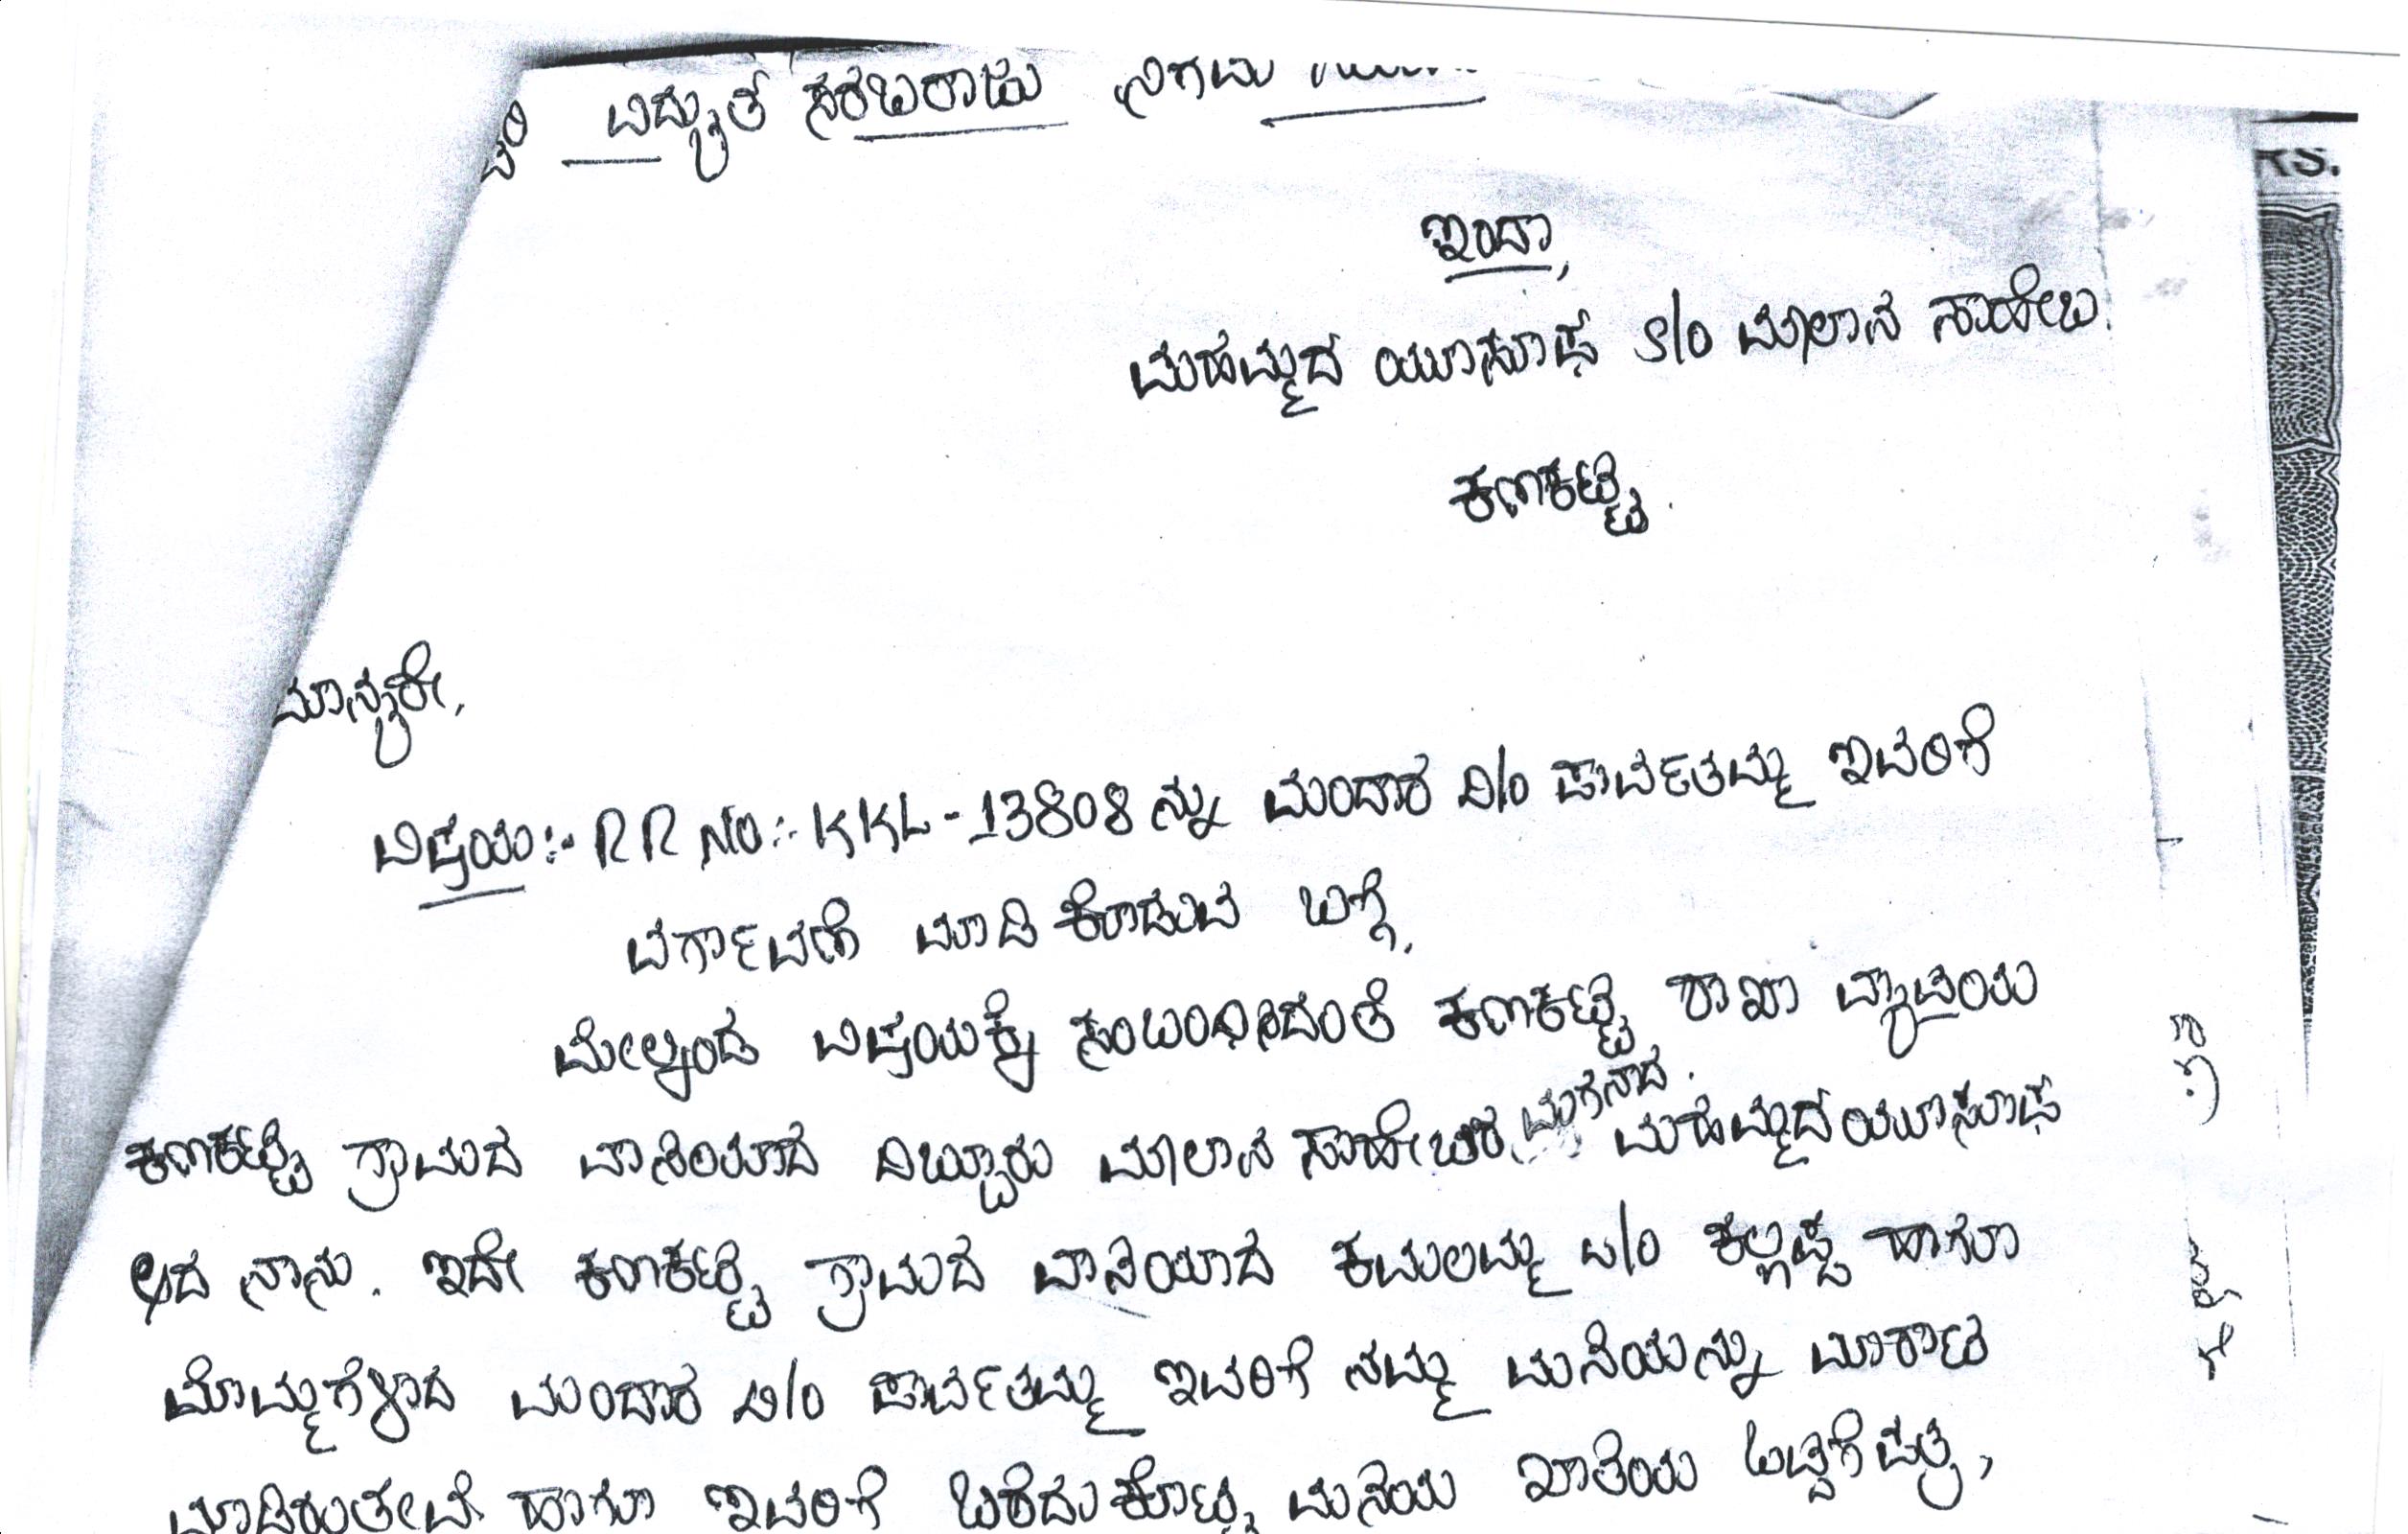 ವಿದ್ಯುತ್ ಸರಬರಾಜು ನಿಗಮ
RS.
ಇಂದಾ,
ಮಹಮ್ಮದ ಯೂಸೂಫ S/o ಮೌಲಾನ ಸಾಹೇಬ.
ಕಣಕಟ್ಟೆ.
ಮಾನ್ಯರೇ,
ವಿಷಯ:- RR No:- KKL-13808 ನ್ನು ಮಂದಾರ D/o ಪಾರ್ವತಮ್ಮ ಇವರಿಗೆ
ವರ್ಗಾವಣೆ ಮಾಡಿ ಕೊಡುವ ಬಗ್ಗೆ.
ಮೇಲ್ಕಂಡ ವಿಷಯಕ್ಕೆ ಸಂಬಂಧಿಸಿದಂತೆ ಕಣಕಟ್ಟೆ ಶಾಖಾ ವ್ಯಾಪ್ತಿಯ
ಕಣಕಟ್ಟೆ ಗ್ರಾಮದ ವಾಸಿಯಾದ ದಿಬ್ಬೂರು ಮೌಲಾನ ಸಾಹೇಬರ ಮಗನಾದ. ಮಹಮ್ಮದ ಯೂಸೂಫ
ಆದ ನಾನು. ಇದೇ ಕಣಕಟ್ಟೆ ಗ್ರಾಮದ ವಾಸಿಯಾದ ಕಮಲಮ್ಮ w/o ಕಲ್ಲಪ್ಪ ಹಾಗೂ
ಮೊಮ್ಮಗಳಾದ ಮಂದಾರ D/o ಪಾರ್ವತಮ್ಮ ಇವರಿಗೆ ನಮ್ಮ ಮನೆಯನ್ನು ಮಾರಾಟ
ಮಾಡಿರುತ್ತೇವೆ. ಹಾಗೂ ಇವರಿಗೆ ಬರೆದು ಕೊಟ್ಟ ಮನೆಯ ಖಾತೆಯ ಒಪ್ಪಿಗೆ ಪತ್ರ,